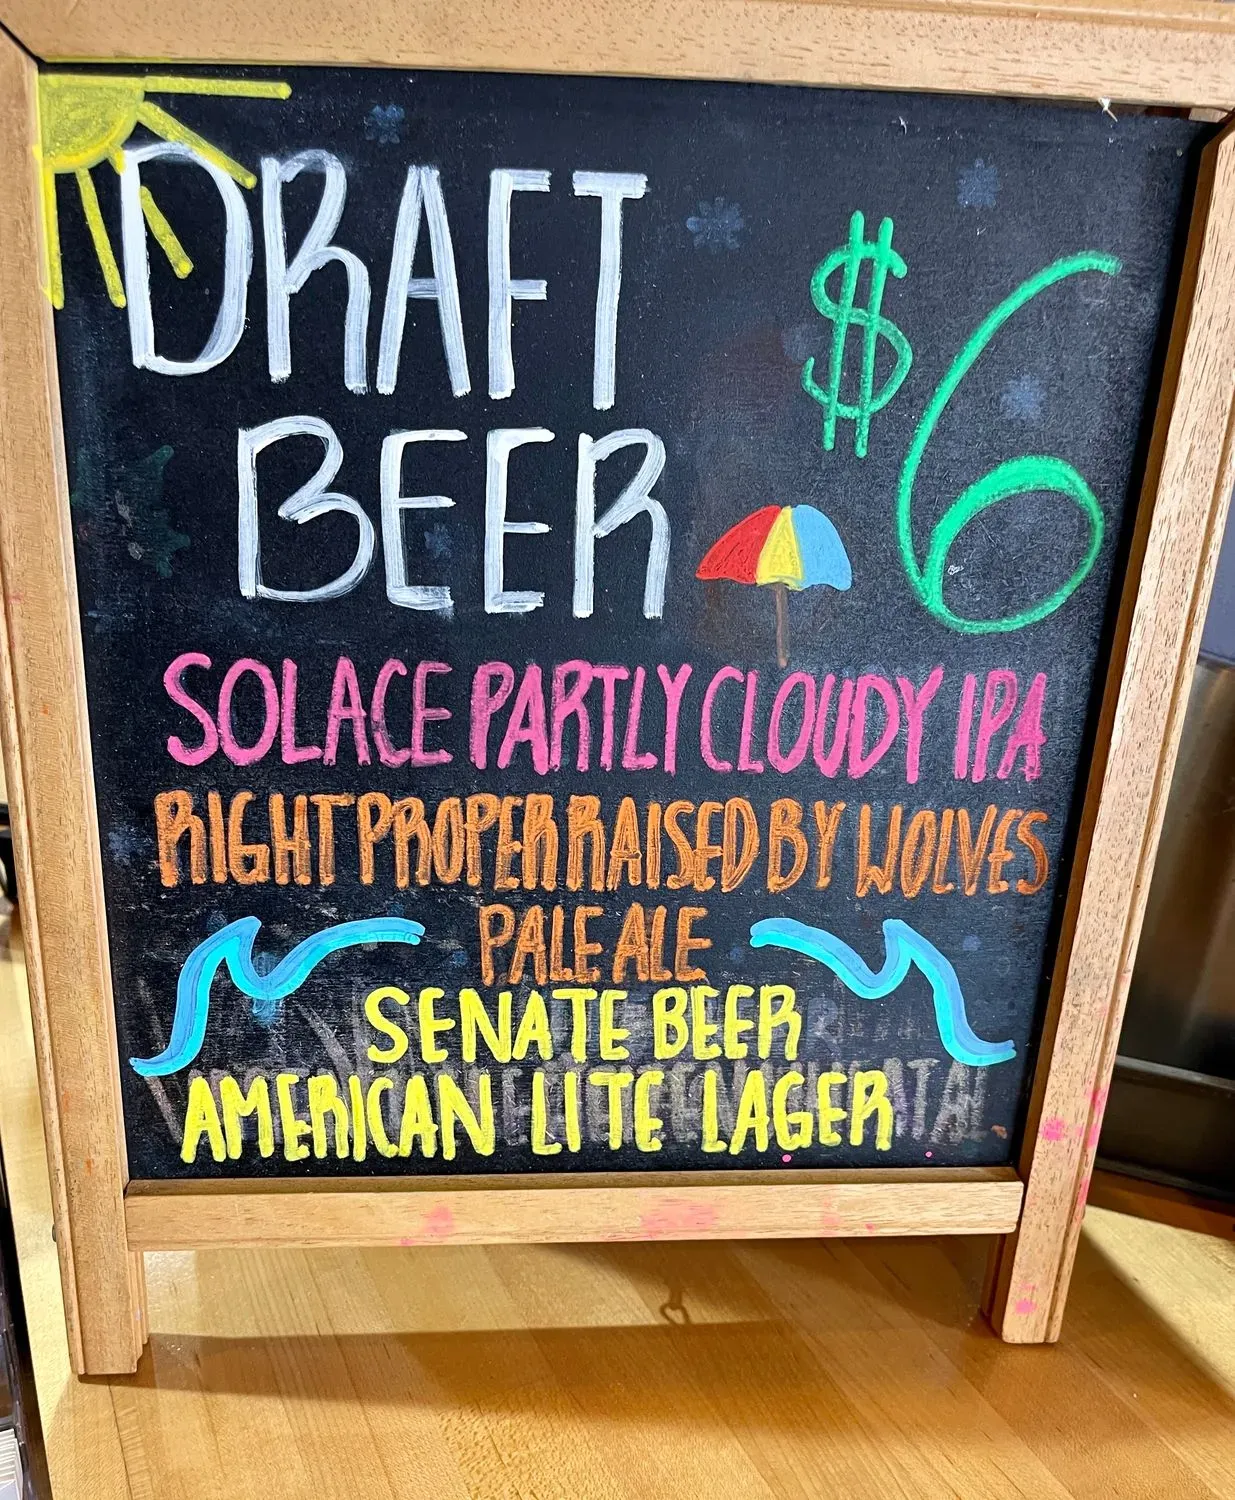 DRAFT
BEER
$6
SOLACE PARTLY CLOUDY IPA
RIGHT PROPER RAISED BY WOLVES
PALE ALE
SENATE BEER
AMERICAN LITE LAGER